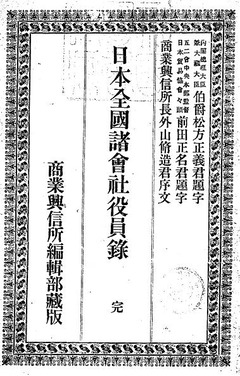 内閣總理大臣
兼大藏大臣
伯爵松方正義君題字
五二會中央本部監督
日本貿易協會々頭
前田正名君題字
商業興信所長外山脩造君序文
日本全國諸會社役員錄
完
商業興信所編輯部藏版